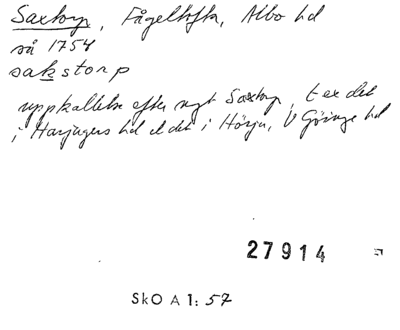 Saxtorp, Fågeltofta, Albo hd
så 1754
sakstorp
uppkallelse efter ngt Saxtorp, t ex det
i Harjagers hd el det i Hörja, V Göinge hd
27914
SkO A 1: 57